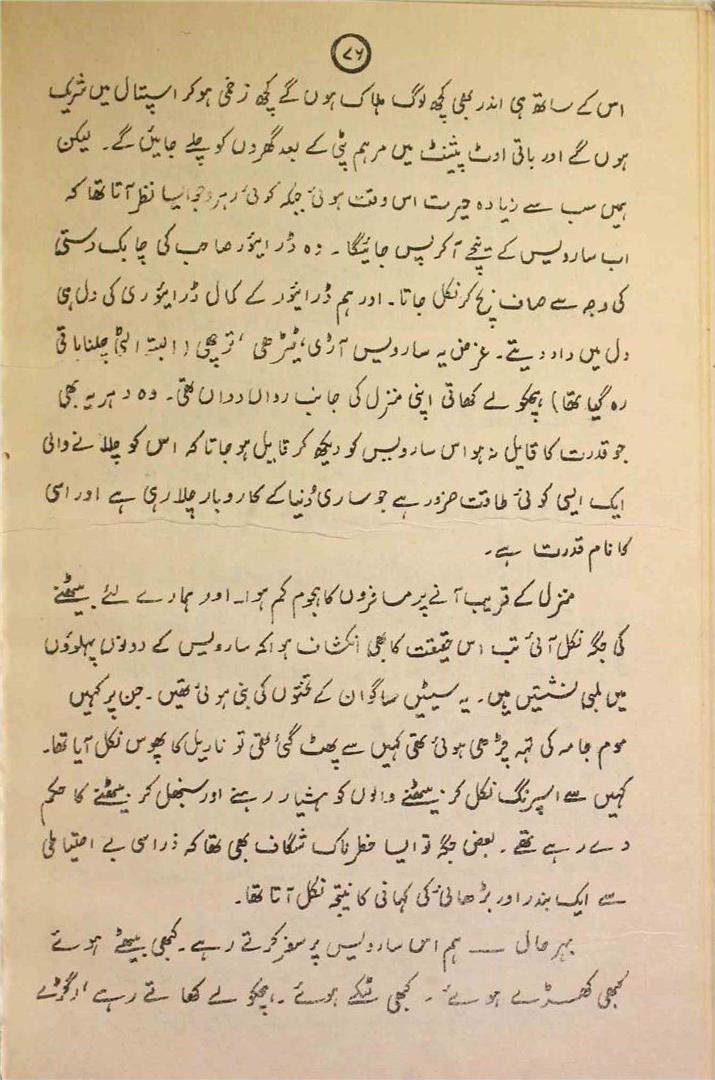 ۷۶
اس کے ساتھ ہی اندر بھی کچھ لوگ ہلاک ہوں گے کچھ زخمی ہوکر اسپتال میں شریک
ہوں گے اور باقی اوٹ پیشنٹ میں مرہم پٹی کے بعد گھروں کو چلے جائیں گے۔ لیکن
ہمیں سب سے زیادہ حیرت اس وقت ہوئی جبکہ کوئی رہرو جو ایسا نظر آتا تھا کہ
اب سارویس کے نیچے آکر پس جائیگا۔ وہ ڈرایور صاحب کی چابک دستی
کی وجہ سے صاف بچ کر نکل جاتا۔ اور ہم ڈرایئور کے کمال ڈرایئوری کی دل ہی
دل میں داد دیتے۔ غرض یہ سارویس آڑی، ٹیڑھی، ترچھی (البتہ الٹی چلنا باقی
رہ گیا تھا) ہچکولے کھاتی اپنی منزل کی جانب رواں دواں تھی۔ وہ دہریہ بھی
جو قدرت کا قایل نہ ہو اس سارویس کو دیکھ کر قایل ہوجاتا کہ اس کو چلانے والی
ایک ایسی کوئی طاقت ضرور ہے جو ساری دُنیا کے کاروبار چلا رہی ہے اور اسی
کا نام قدرت ہے۔
منزل کے قریب آنے پر مسافروں کا ہجوم کم ہوا۔ اور ہمارے لئے بیٹھنے
کی جگہ نکل آئی تب اس حقیقت کا بھی انکشاف ہوا کہ سارویس کے دونوں پہلوؤں
میں لمبی نشستیں ہیں۔ یہ سیٹیں ساگوان کے تختوں کی بنی ہوئی تھیں۔ جن پر کہیں
موم جامہ کی تہہ چڑھی ہوئی تھی کہیں سے پھٹ گئی تھی تو ناریل کا پھوس نکل آیا تھا۔
کہیں سے اسپرنگ نکل کر بیٹھنے والوں کو ہشیار رہنے اور سنبھل کر بیٹھنے کا حکم
دے رہے تھے۔ بعض جگہ تو ایسا خطرناک شگاف بھی تھا کہ ذرا سی بے احتیاطی
سے ایک بندر اور بڑھائی کی کہانی کا نتیجہ نکل آتا تھا۔
بہر حال ــــ ہم اس سارویس پر سفر کرتے رہے۔ کبھی بیٹھے ہوئے
کبھی کھڑے ہوئے۔ کبھی ٹنگے ہوئے۔ ہچکولے کھاتے رہے، رگڑے